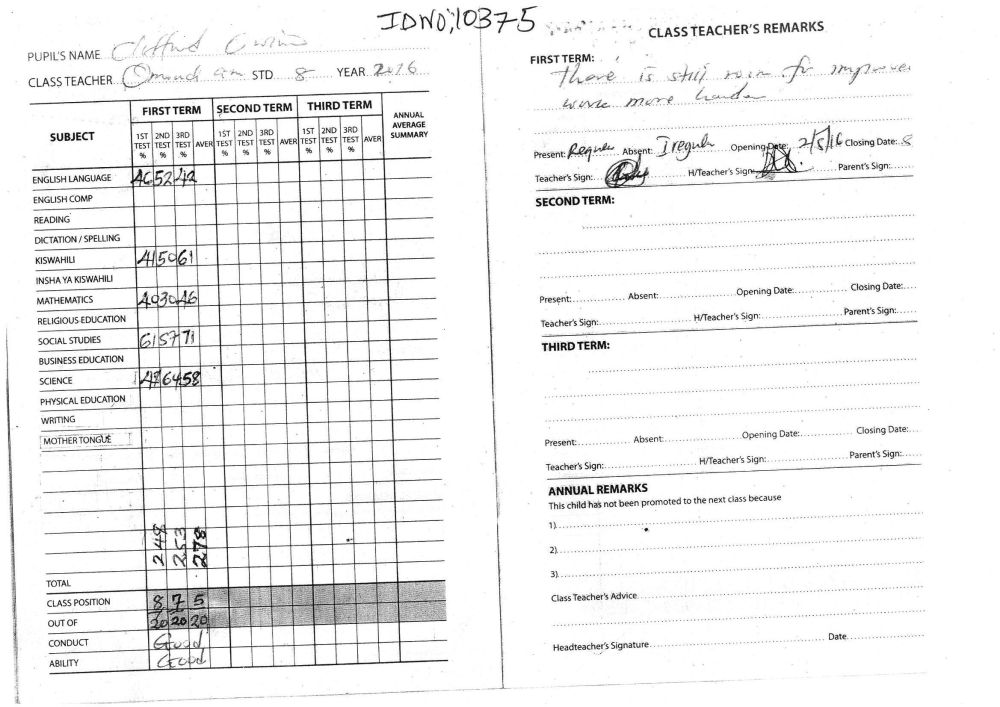 IDNO;10375
PUPIL'S NAME Clifford
CLASS TEACHER STD 8 YEAR 2016
SUBJECT FIRST TERM SECOND TERM THIRD TERM ANNUAL AVERAGE SUMMARY
1ST TEST % 2ND TEST % 3RD TEST % AVER 1ST TEST % 2ND TEST % 3RD TEST % AVER 1ST TEST % 2ND TEST % 3RD TEST % AVER
ENGLISH LANGUAGE 46 52 42
ENGLISH COMP
READING
DICTATION / SPELLING
KISWAHILI 41 50 61
INSHA YA KISWAHILI
MATHEMATICS 40 30 46
RELIGIOUS EDUCATION
SOCIAL STUDIES 61 57 71
BUSINESS EDUCATION
SCIENCE 64 58
PHYSICAL EDUCATION
WRITING
MOTHER TONGUE
248 253 278
TOTAL
CLASS POSITION 8 7 5
OUT OF 20 20 20
CONDUCT Good
ABILITY Good
CLASS TEACHER'S REMARKS
FIRST TERM:
There is still room for improve
work more harder
Present: Absent: Opening Date: 2/5/16 Closing Date: 8
Teacher's Sign: H/Teacher's Sign: Parent's Sign:
SECOND TERM:
Present: Absent: Opening Date: Closing Date:
Teacher's Sign: H/Teacher's Sign: Parent's Sign:
THIRD TERM:
Present: Absent: Opening Date: Closing Date:
Teacher's Sign: H/Teacher's Sign: Parent's Sign:
ANNUAL REMARKS
This child has not been promoted to the next class because
1)
2)
3)
Class Teacher's Advice
Headteacher's Signature Date